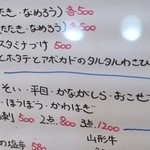 たたき・なめろう) 各500
たたき・なめろう) 各500
スタミナづけ 500
とホタテとアボカドのタルタルわさび
そい・平目・かながしら・おこぜ
・ほうぼう・かわはぎ
刺 500 2点 800 3点 1200
山形牛
塩辛 580